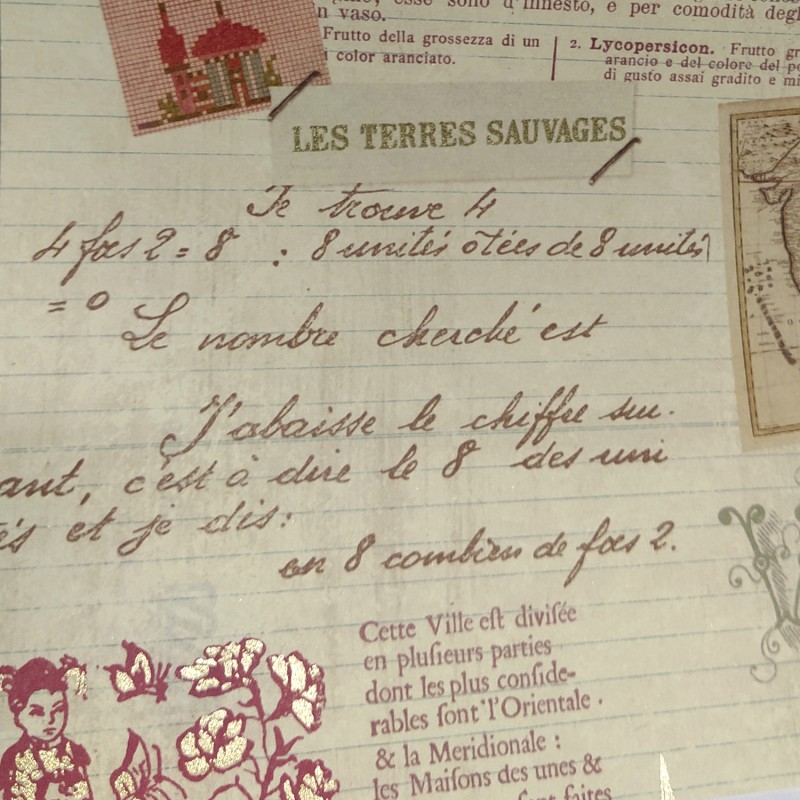 esse sono d'innesto, e per comodità
n vaso.
Frutto della grossezza di un
color aranciato.
2. Lycopersicon. Frutto
arancio e del colore del
di gusto assai gradito e
LES TERRES SAUVAGES
Je trouve 4
4 fois 2 = 8 : 8 unités ôtées de 8 unités
= 0
Le nombre cherché est
J'abaisse le chiffre sui-
ant, c'est à dire le 8 des uni
és et je dis:
en 8 combien de fois 2.
Cette Ville eſt diviſée
en pluſieurs parties
dont les plus conſide-
rables ſont l'Orientale .
& la Meridionale :
les Maiſons des unes &
ſont faites